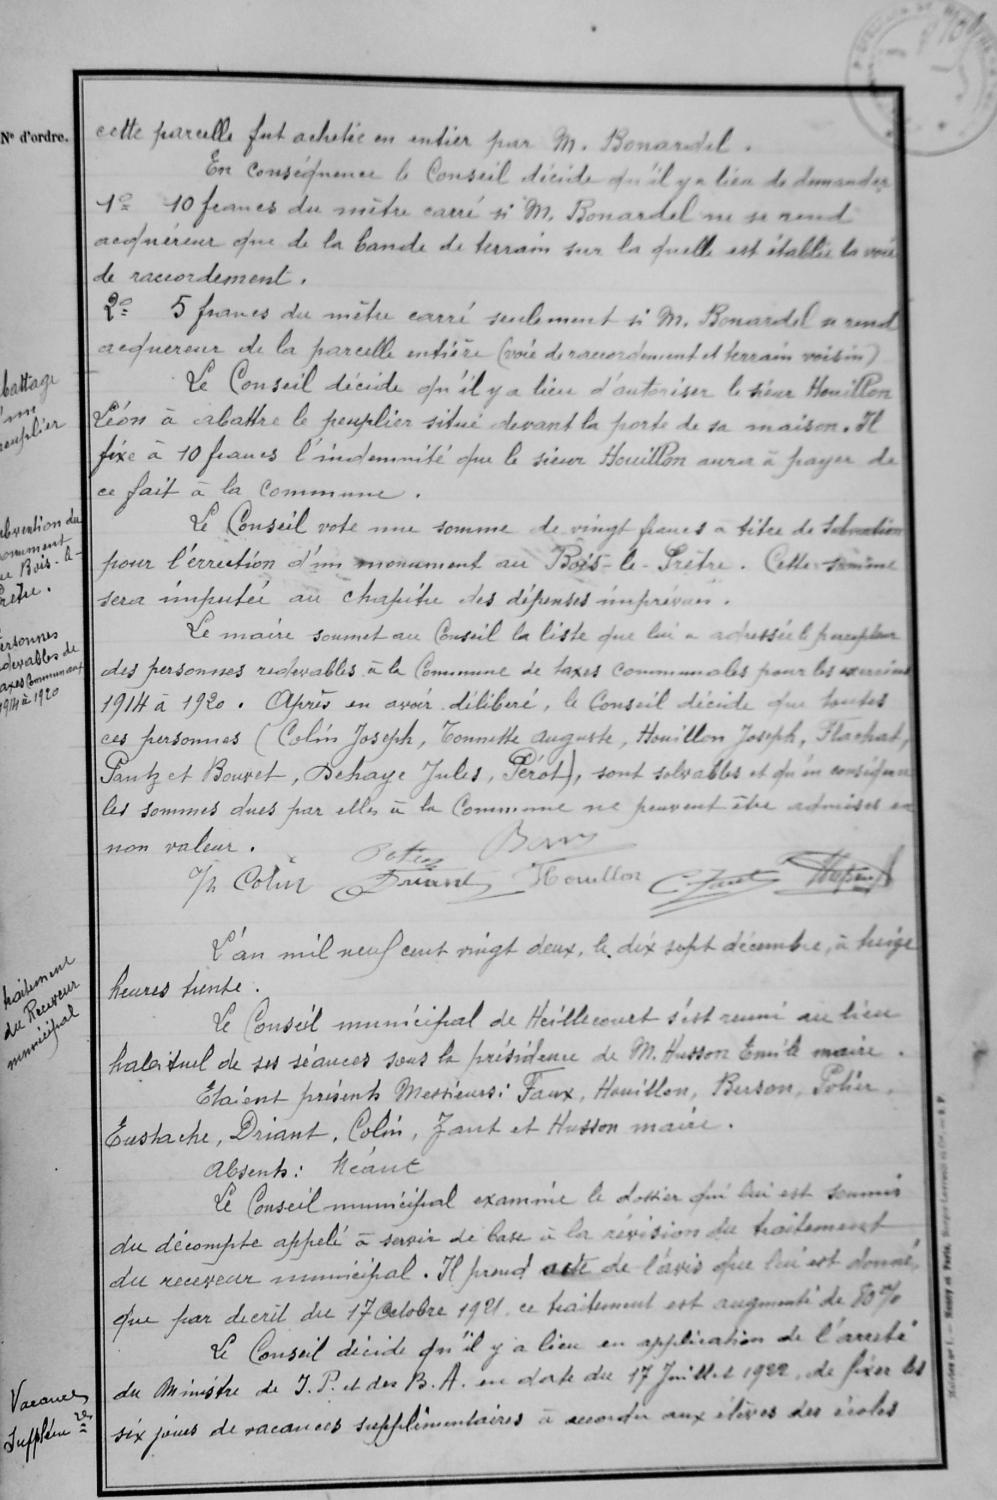 Nº d'ordre.
cette parcelle fut achetée en entier par M. Bonardel.
En conséquence le Conseil décide qu'il y a lieu de demander
1º 10 francs du mètre carré si M. Bonardel ne se rend
acquéreur que de la bande de terrain sur la quelle est établie la voie
de raccordement.
2º 5 francs du mètre carré seulement si M. Bonardel se rend
acquereur de la parcelle entière (voie de raccordement et terrain voisin)
battage
d'un
peuplier
Le Conseil décide qu'il y a lieu d'autoriser le sieur Houillon
Léon à abattre le peuplier situé devant la porte de sa maison. Il
fixe à 10 francs l'indemnité que le sieur Houillon aura à payer de
ce fait à la commune.
ubvention du
onument
au Bois-le-
Prêtre.
Le Conseil vote une somme de vingt francs à titre de subvention
pour l'érrection d'un monument au Bois-le-Prêtre. Cette somme
sera imputée au chapitre des dépenses imprévues.
ersonnes
edevables de
axes Communaux
1914 à 1920
Le maire soumet au Conseil la liste que lui a adressée le percepteur
des personnes redevables à la Commune de taxes communales pour les exercices
1914 à 1920. Après en avoir délibéré, le Conseil décide que toutes
ces personnes (Colin Joseph, Tonnette Auguste, Houillon Joseph, Flachat,
Pantz et Bouvet, Dehaye Jules, Pérot), sont solvables et qu'en conséquence
les sommes dues par elles à la Commune ne peuvent être admises en
non valeur.
Potier
Colin Driant Houillon C. Zant
L'an mil neuf cent vingt deux, le dix sept décembre, à treize
heures trente.
traitement
du Receveur
municipal
Le Conseil municipal de Heillecourt s'est réuni au lieu
habituel de ses séances sous la présidence de M. Husson Emile maire.
Etaient présents Messieurs: Faux, Houillon, Berson, Potier,
Eustache, Driant, Colin, Zant et Husson maire.
Absents: Néant
Le Conseil municipal examine le dossier qui lui est soumis
du décompte appelé à servir de base à la révision du traitement
du receveur municipal. Il prend acte de l'avis que lui est donné,
que par decrit du 17 Octobre 1921 ce traitement est augmenté de 80%
Vacances
Supplém res
Le Conseil décide qu'il y a lieu en application de l'arreté
du Ministre de I. P. et des B. A. en date du 17 Juillet 1922, de fixer les
six jours de vacances supplémentaires à accorder aux élèves des écoles